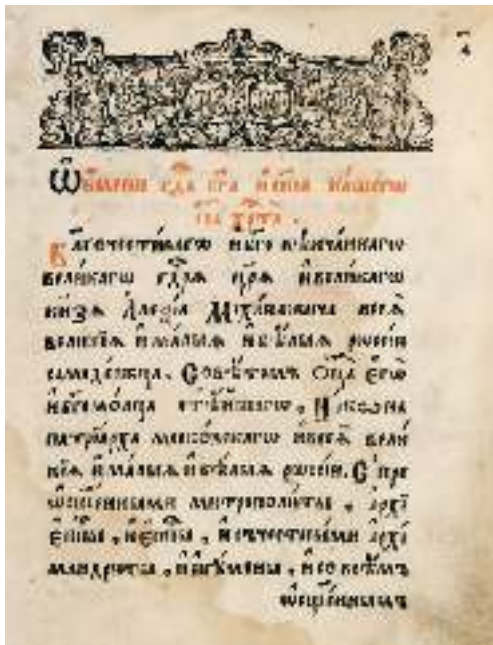 Ѡ҆ гдⷭ҇а
і҆и҃са хрⷭ҇та̀
Бл҃гочести́вагѡ
вели́кагѡ гдⷭ҇рѧ̀ цр҃ѧ̀ и҆ вели́кагѡ
кнѧ́зѧ А҆леѯі́а Мїха́йловича всеѧ̀
вели́кїѧ и҆ ма́лыѧ и҆ бѣ́лыѧ рѡссі́и
самоде́ржца. Совѣ́томъ Ѻ҆ц҃а̀ є҆гѡ̀
и҆ бг҃омо́лца ст҃ѣ́йшагѡ, Ні́кѡна
патрїа́рха моско́вскагѡ и҆ всеѧ̀ вели́
кїѧ и҆ ма́лыѧ и҆ бѣ́лыѧ рѡссі́и. С̾ пре
ѡ҆сщ҃е́нными митрополи́ты, а҆рхїє
є҆пⷭ҇кпы, и҆ є҆пⷭ҇кпы, и҆ а҆рхї
мандри́ты, и҆ и҆гꙋ́мены, и҆ со всѣ́мъ
ѡ҆сщ҃е́ннымъ